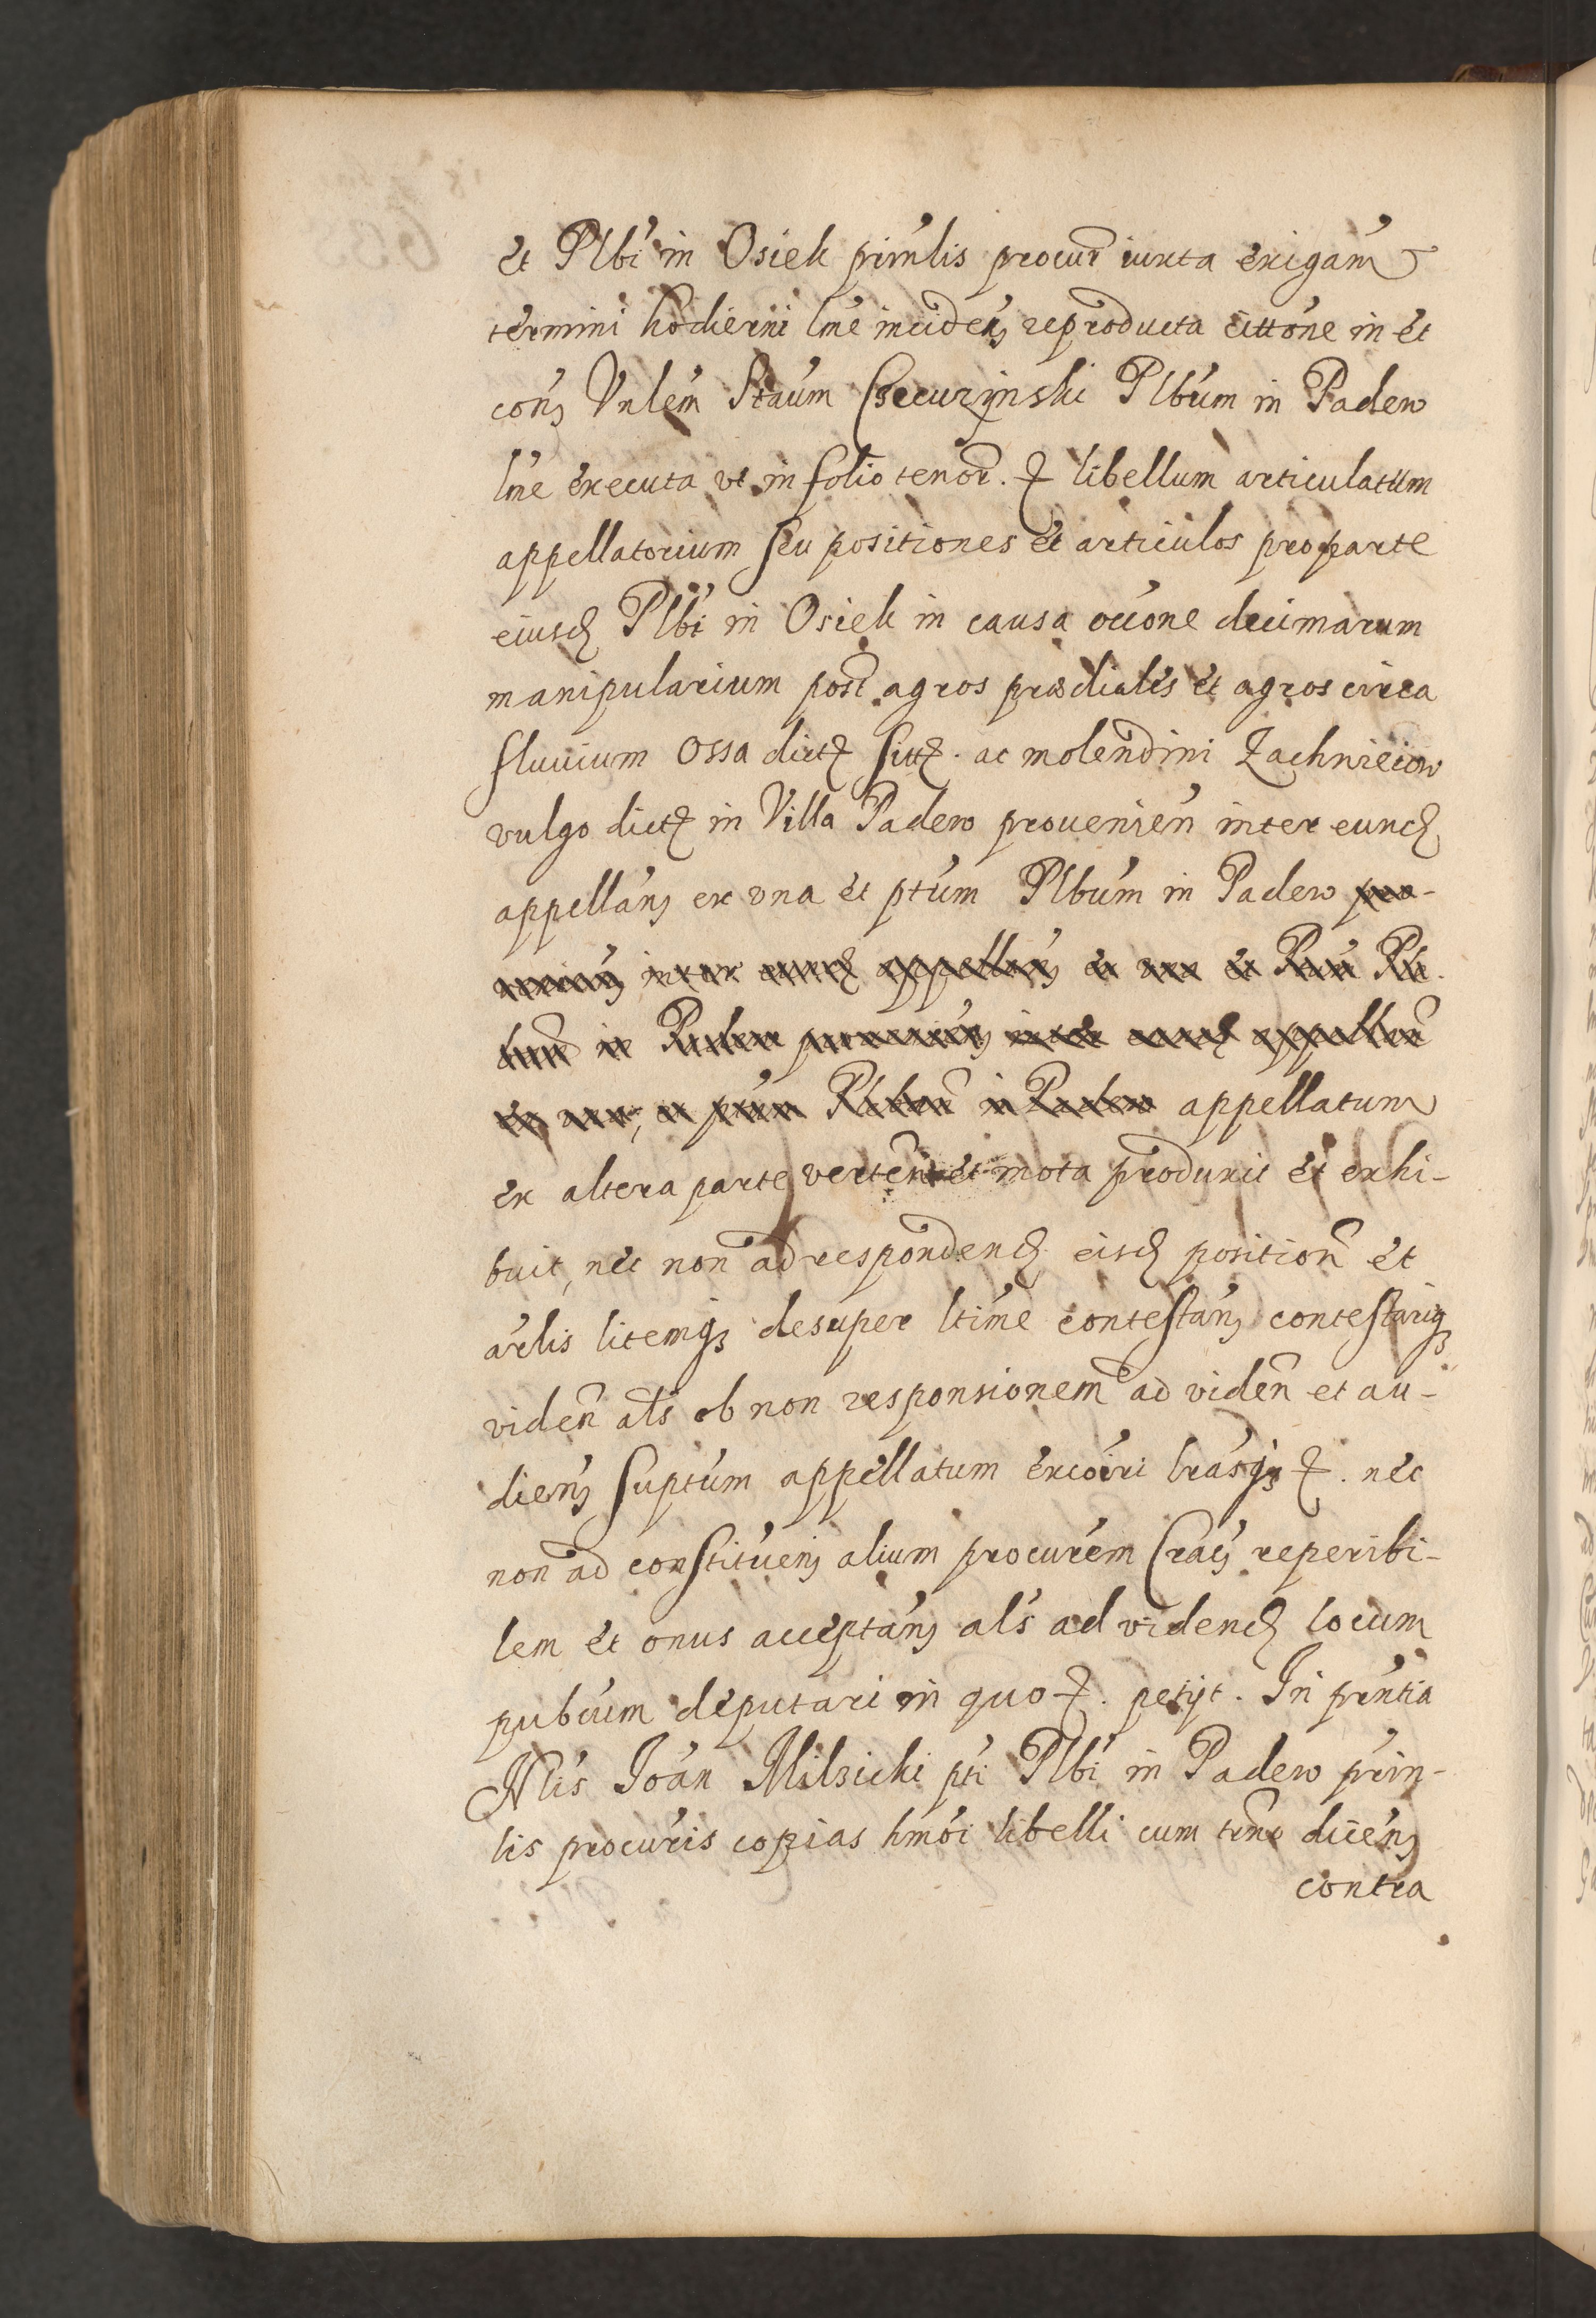 et Plbi in Osiek prinlis procur iuxta exigam
termini hodierni lme inciden reproducta cittone in et
con Vnlem Staum Czeczynski Plbum in Padew
lme executa vt in folio tenor. & libellum articulatum
appellatorium seu positiones et articulos pro parte
eiusd Plbi in Osiek in causa occone decimarum
manipularium post agros prædiales et agros circa
fluuium Ossa dict sitt. ac molendini Zachwieiow
vulgo dict in Villa Padew prouenien inter eund
appellan ex vna et ptum Plbum in Padew pro-
inter eund appellan ex vna et Ple-
bum in Padew prouenien inter eund appellan
ex vna, et ptum Plebum in Padew appellatum
ex altera parte verten et mota produxit et exhi-
buit, nec non ad respondend eisd position et
arlis litemq desuper ltime contestan contestariq
viden als ob non responsionem ad viden et au-
dien suptum appellatum excoiri lrasq &. nec
non ad constituen alium procurem Crac reperibi-
lem et onus acceptan als ad vidend locum
pubcum deputari in quo &. petijt. In prntia
Nlis Joan Milzicki pti Plbi in Padew prin-
lis procuris copias hmoi libelli cum tmno dicen
contra